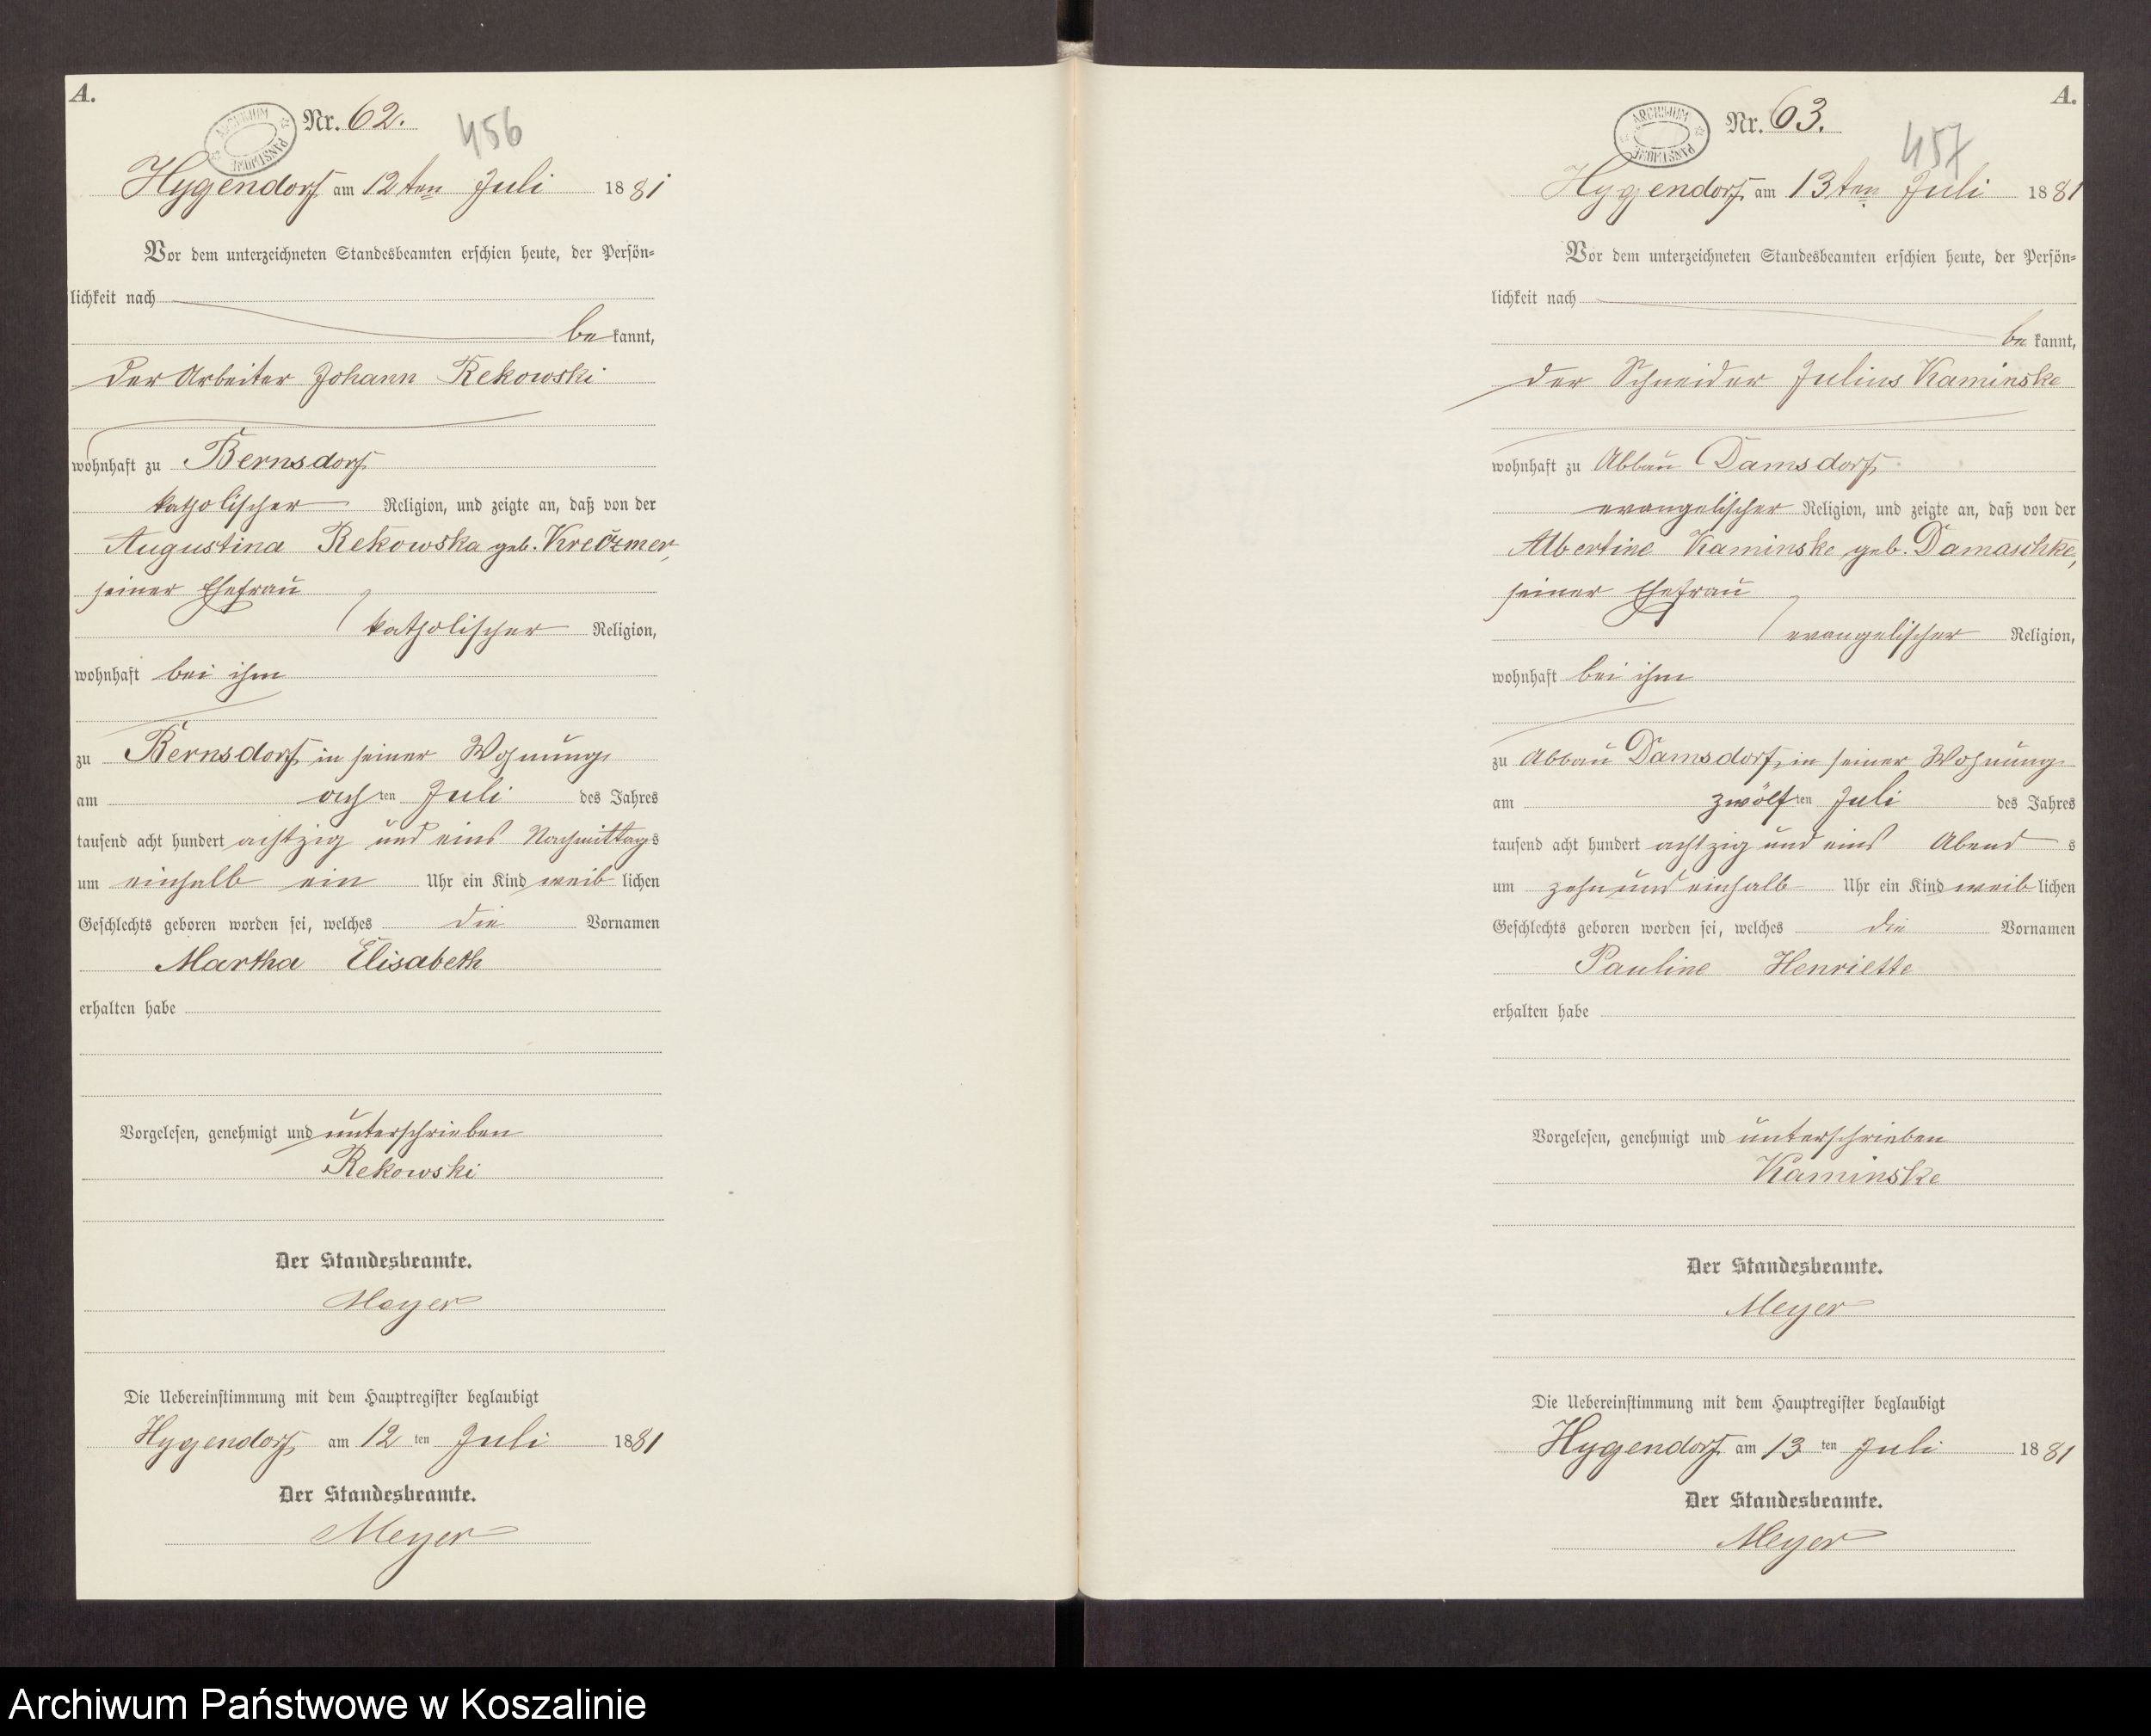 A.
Nr. 62.
456
ARCHIWUM PAŃSTWOWE
Hygendorf am 12ten Juli 1881
Vor dem unterzeichneten Standesbeamten erschien heute, der Persön-
lichkeit nach
be kannt,
der Arbeiter Johann Rekowski
wohnhaft zu Bernsdorf
katholischer Religion, und zeigte an, daß von der
Augustina Rekowska geb.
seiner Ehefrau
katholischer Religion,
wohnhaft bei ihm
zu Bernsdorf in seiner Wohnung
am achten Juli des Jahres
tausend acht hundert achtzig und eins Nachmittags
um einhalb ein Uhr ein Kind weib lichen
Geschlechts geboren worden sei, welches die Vornamen
Martha Elisabeth
erhalten habe
Vorgelesen, genehmigt und unterschrieben
Rekowski
Der Standesbeamte.
Meyer
Die Uebereinstimmung mit dem Hauptregister beglaubigt
Hygendorf am 12 ten Juli 1881
Der Standesbeamte.
Meyer
A.
Nr. 63.
457
ARCHIWUM PAŃSTWOWE
Hygendorf am 13ten Juli 1881
Vor dem unterzeichneten Standesbeamten erschien heute, der Persön-
lichkeit nach
be kannt,
der Schneider Julius Kaminske
wohnhaft zu Abbau Damsdorf
evangelischer Religion, und zeigte an, daß von der
Albertine Kaminske geb. Damaschke,
seiner Ehefrau
evangelischer Religion,
wohnhaft bei ihm
zu Abbau Damsdorf, in seiner Wohnung
am zwölften Juli des Jahres
tausend acht hundert achtzig und eins Abend s
um zehn und einhalb Uhr ein Kind weib lichen
Geschlechts geboren worden sei, welches die Vornamen
Pauline Henriette
erhalten habe
Vorgelesen, genehmigt und unterschrieben
Kaminske
Der Standesbeamte.
Meyer
Die Uebereinstimmung mit dem Hauptregister beglaubigt
Hygendorf am 13 ten Juli 1881
Der Standesbeamte.
Meyer
Archiwum Państwowe w Koszalinie